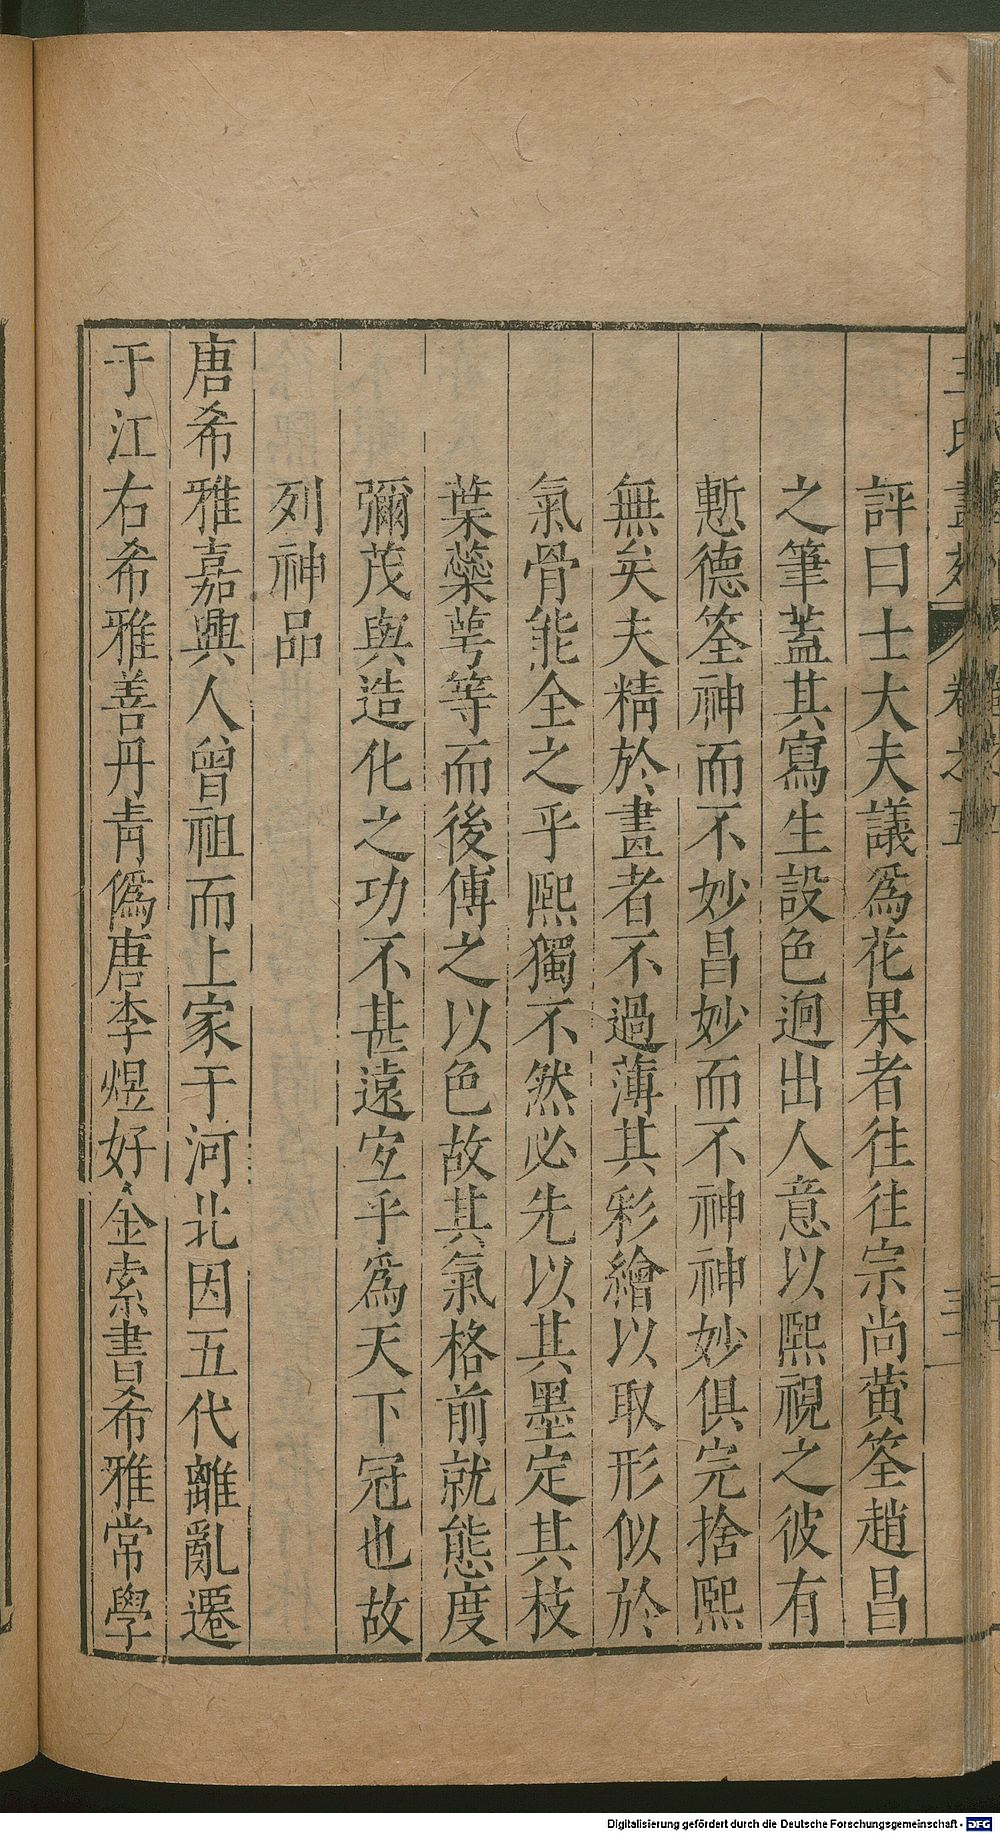 王氏畫苑 卷之五
評曰士大夫議爲花果者往往宗尚黄筌趙昌
之筆蓋其寫生設色迥出人意以熙視之彼有
慙德筌神而不妙昌妙而不神神妙俱完捨熙
無矣夫精於畫者不過薄其彩繪以取形似於
氣骨能全之乎熙獨不然必先以其墨定其枝
葉蘂萼等而後傅之以色故其氣格前就態度
彌茂與造化之功不甚遠宐乎爲天下冠也故
列神品
唐希雅嘉興人曾祖而上家于河北因五代離亂遷
于江右希雅善丹青僞唐李煜好金索書希雅常學
Digitalisierung gefördert durch die Deutsche Forschungsgemeinschaft - DFG